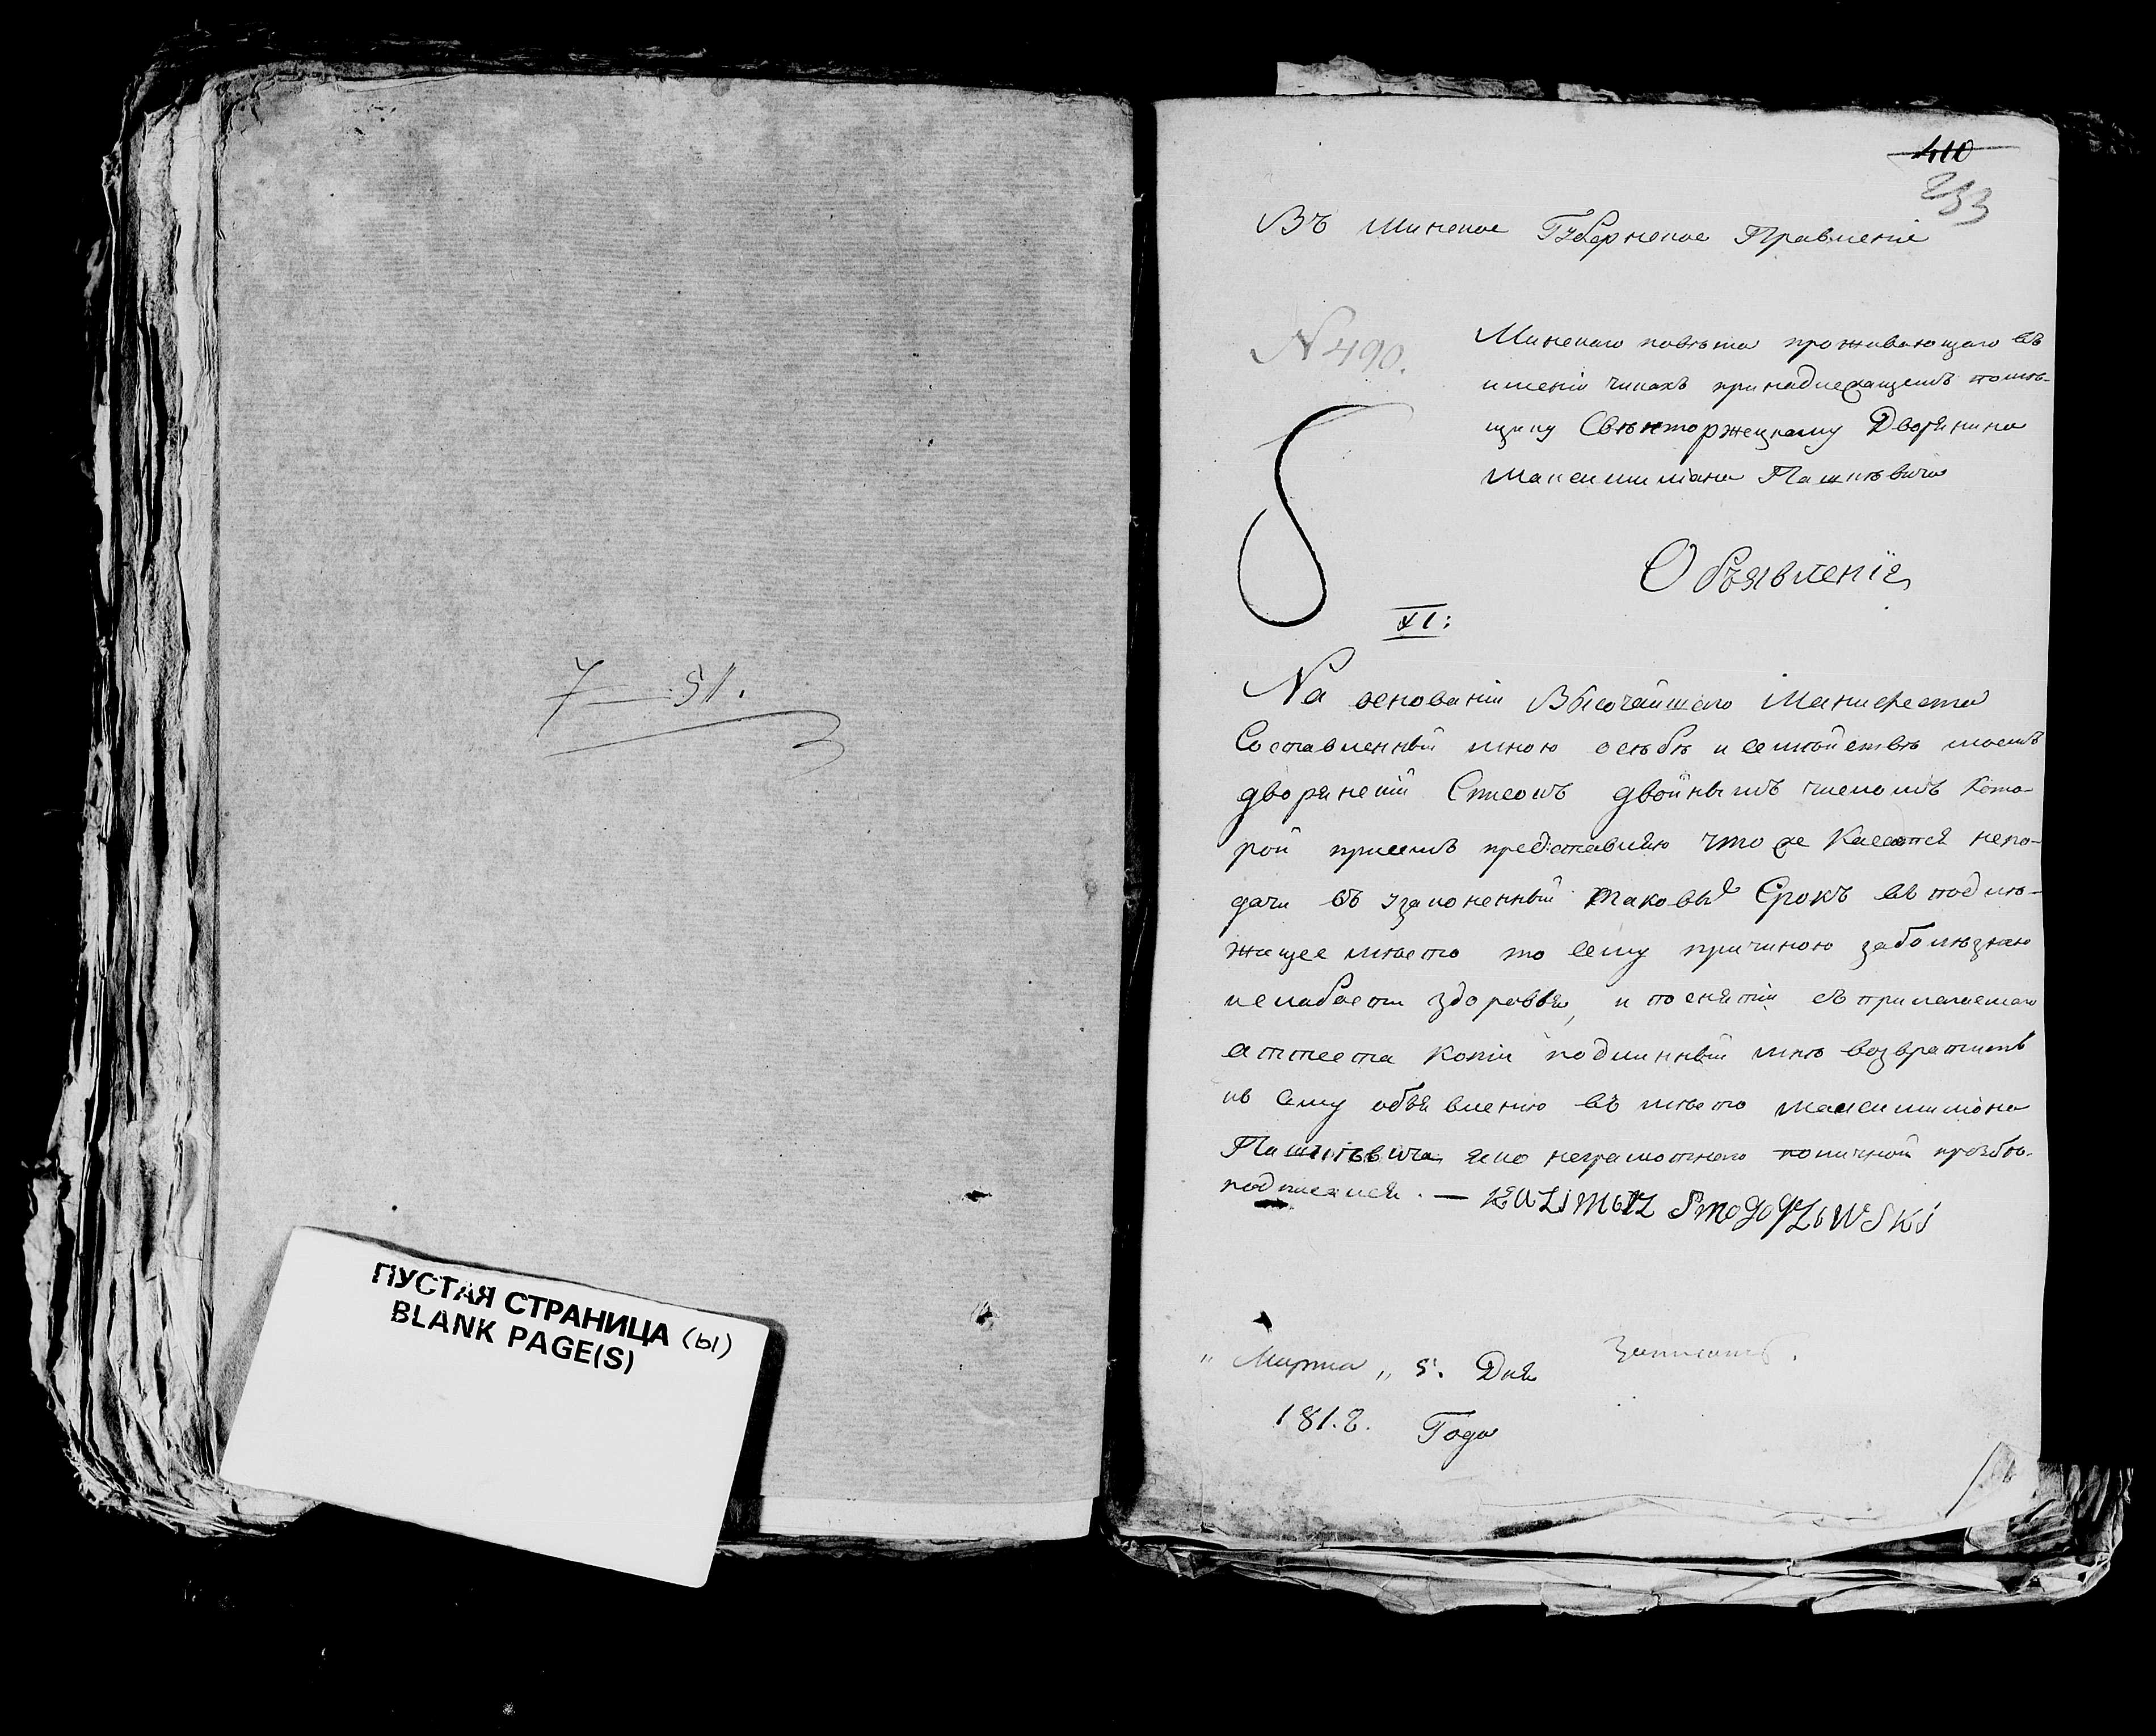 7 — 51.
ПУСТАЯ СТРАНИЦА (ы)
BLANK PAGE(S)
410
253
Въ Минское Губернское Правленіе
N 490.
Минскаго повѣта проживающаго въ
именіи чикахъ принадлежащемъ помѣ-
щику Свѣнторжецкому Дворянина
Максимиліана Пашкѣвича
Объявленіе
XI:
На основаніи Высочайшаго Манифеста
Составленный мною осѣбѣ и семѣйствѣ моемъ
дворянскій Списокъ двойнымъ числомъ Кото-
рой присемъ представляю что же Касается непо-
дачи въ узаконенный таковый Срокъ въ подлѣ-
жащее мѣсто то сему причиною заболѣзнею
ислабости здоровья, и поснятіи съ прилагаемаго
аттеста копіи подлинный мнѣ возвратить
къ сему объявленію въ мѣсто максимиліана
Пашкѣвича яко неграмотнаго поличной прозбѣ
подписался. — KaZimirz SmogorZewSKi
„ Марта „ 5. Дня
1812. Года
Записать.